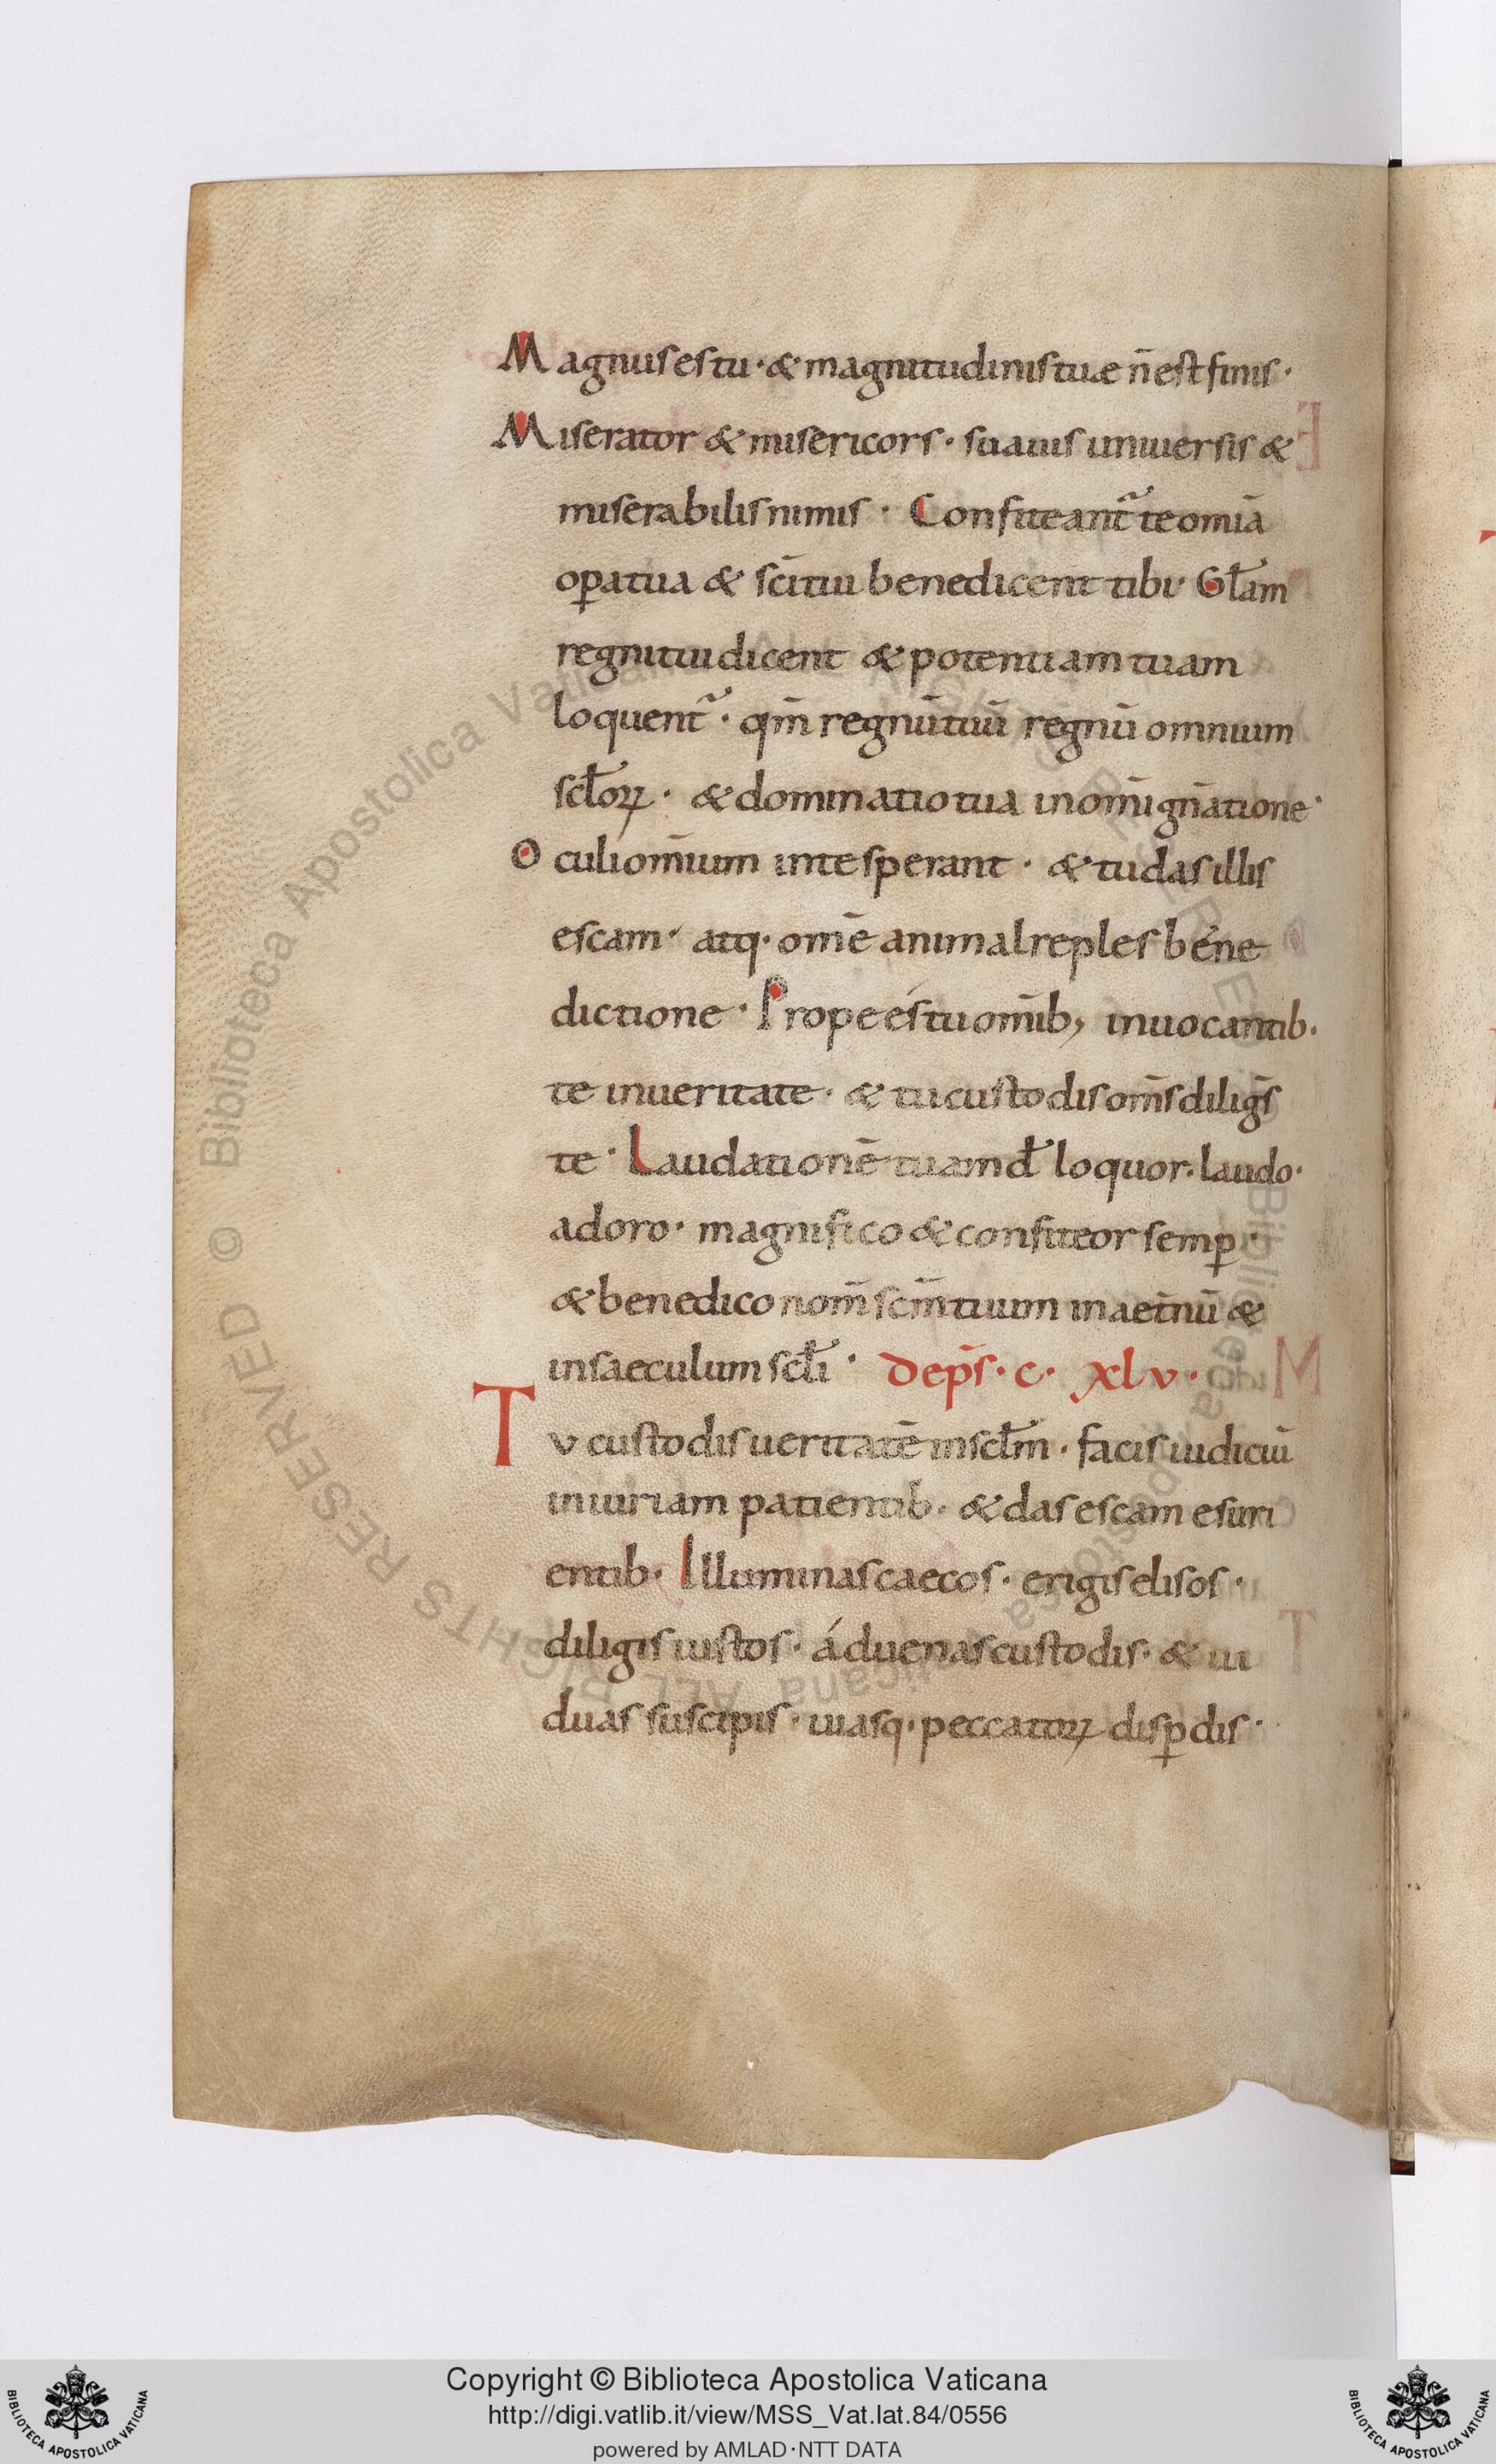 Magnus es tu · & magnitudinis tuae n̄ est finis ·
Miserator & misericors · suauis uniuersis &
miserabilis nimis · Confiteant᷑ te om̄ia
oꝑa tua & sc̄i tui benedicent tibi · Gꝉam
regni tui dicent & potentiam tuam
loquent᷑ · qm̄ regnū tuū regnū omnium
scꝉoꝝ · & dominatio tua in om̄i gn̄atione ·
Oculi om̄ium in te sperant · & tu das illis
escam · atq· omē animal reples bene
dictione · Prope es tu om̄ib; inuocantib·
te in ueritate · & tu custodis om̄s diligs̄
te · Laudationē tuam dꝉ loquor · laudo ·
adoro · magnifico & confiteor semꝑ ·
& benedico nom̄ scm̄ tuum in aet̄nū &
in saeculum scꝉi · De ps̄ · c · xlv ·
Tv custodis ueritatē in scꝉm · facis iudiciū
iniuriam patientib · & das escam esuri
entib · Illuminas caecos · erigis elisos ·
diligis iustos · áduenas custodis · & ui
duas suscipis · uiasq· peccatoꝝ disꝑdis ·
Biblioteca Apostolica Vaticana ALL RIGHTS RESERVED ©
Copyright © Biblioteca Apostolica Vaticana
http://digi.vatlib.it/view/MSS_Vat.lat.84/0556
powered by AMLAD·NTT DATA
BIBLIOTECA APOSTOLICA VATICANA
BIBLIOTECA APOSTOLICA VATICANA